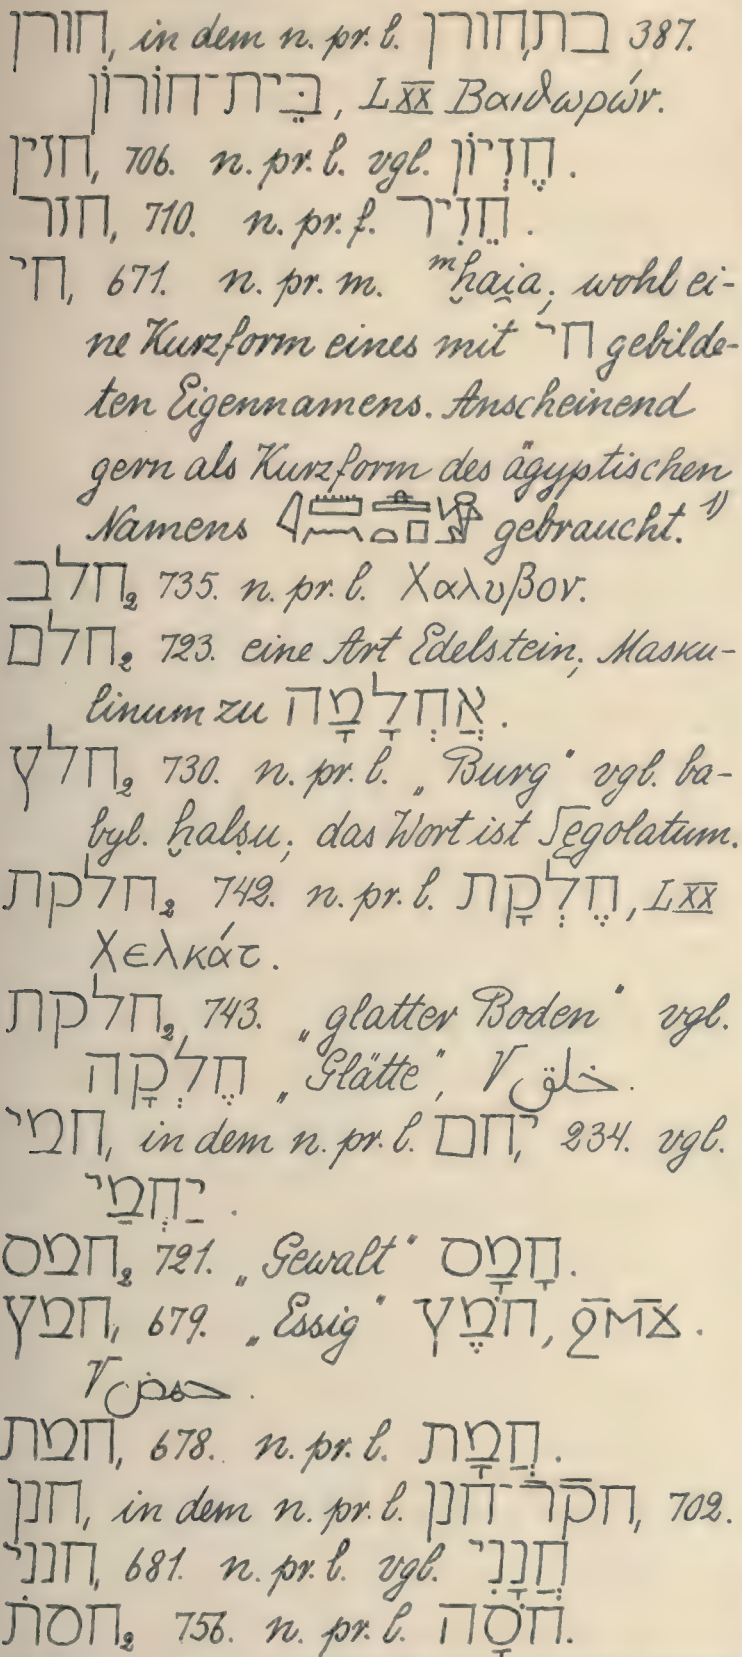 חורן, in dem n. pr. l. בת,חורן 387.
בֵּית־חוֹרוֹן, LXX Βαιϑωρών.
חזין, 706. n. pr. l. vgl. חֶזְיוֹן.
חזר, 710. n. pr. f. חֵזִיר.
חי, 671. n. pr. m. ᵐḫai̯a; wohl ei-
ne Kurzform eines mit חי gebilde-
ten Eigennamens. Anscheinend
gern als Kurzform des ägyptischen
Namens gebraucht.¹⁾
חלב₂ 735. n. pr. l. Χαλυβον.
חלם₂ 723. eine Art Edelstein; Masku-
linum zu אֲחְלָמָה.
חלץ₂ 730. n. pr. l. „Burg“ vgl. ba-
byl. ḫalṣu; das Wort ist Segolatum.
חלקת₂ 742. n. pr. l. חֶלְקָת, LXX
Χελκάτ.
חלקת₂ 743. „glatter Boden“ vgl.
חֶלְקָה „Glätte“, √خلق.
חמי, in dem n. pr. l. י,חם 234. vgl.
יַחְמַי.
חמס₂ 721. „Gewalt“ חָמָס.
חמץ, 679. „Essig“ חֹמֶץ, ϩⲙϫ.
√حمض.
חמת, 678. n. pr. l. חֲמָת.
חנן, in dem n. pr. l. חקר־חנן, 702.
חנני, 681. n. pr. l. vgl. חֲנָנִי
חסת₂ 756. n. pr. l. חֹסָה.